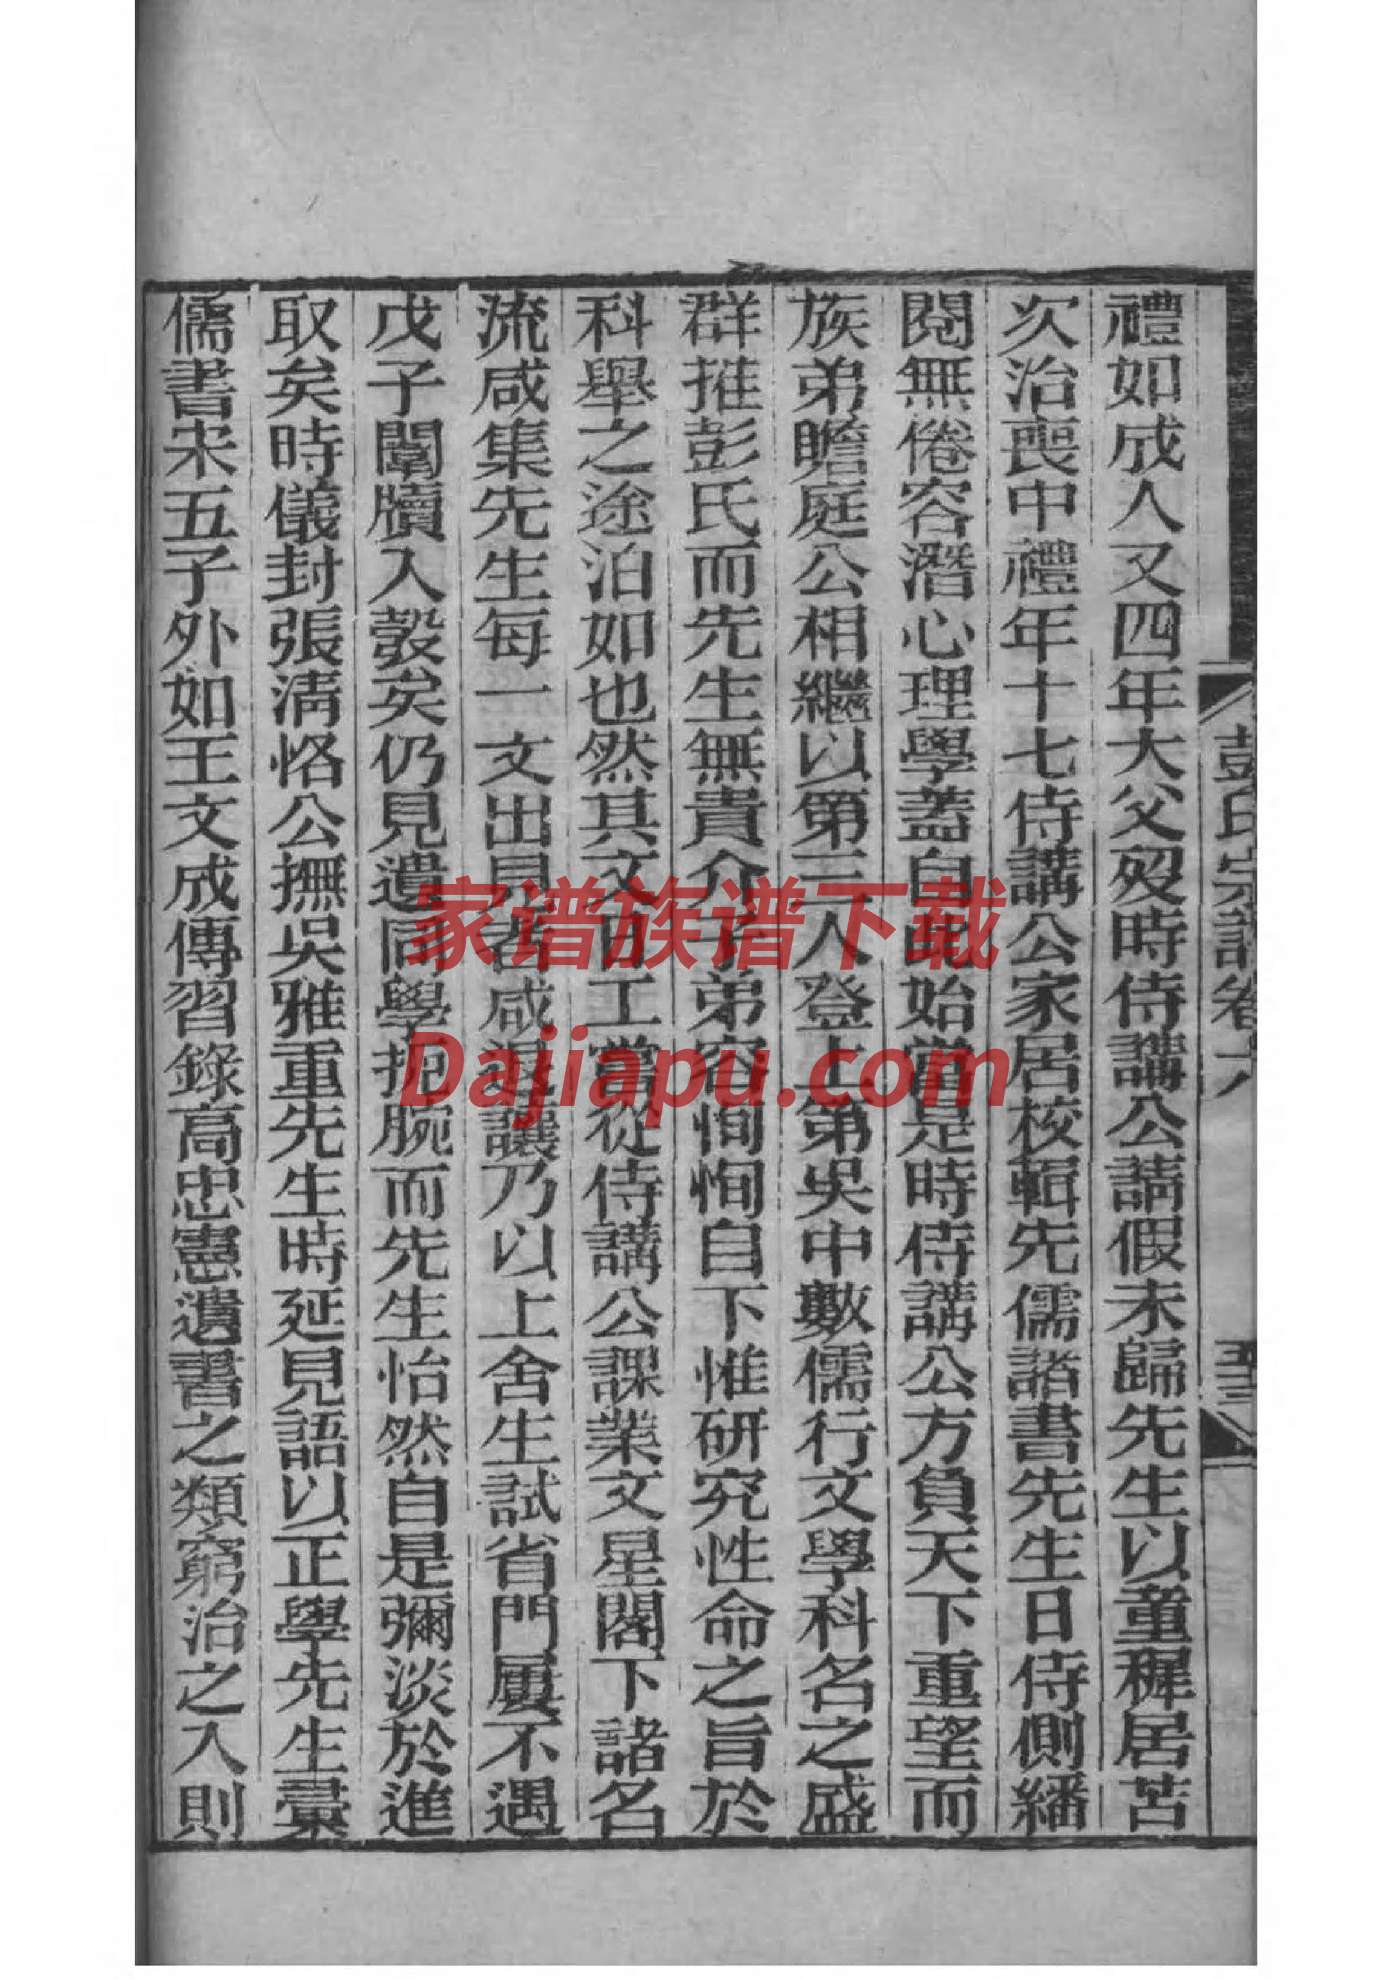 禮如成人又四年大父歿時侍講公請假未歸先生以童穉居苫
次治喪中禮年十七侍講公家居校輯先儒諸書先生日侍側繙
閱無倦容潛心理學蓋自此始當是時侍講公方負天下重望而
族弟瞻庭公相繼以第三人登上第吳中數儒行文學科名之盛
群推彭氏而先生無貴介子弟容恂恂自下惟研究性命之旨於
科舉之途泊如也然其文日工嘗從侍講公課業文星閣下諸名
流咸集先生每一文出見者咸退讓乃以上舍生試省門屢不遇
戊子闈牘入彀矣仍見遺同學扼腕而先生怡然自是彌淡於進
取矣時儀封張清恪公撫吳雅重先生時延見語以正學先生彙
儒書宋五子外如王文成傳習錄高忠憲遺書之類窮治之入則
彭氏宗譜卷十八
五十三
家谱族谱下载
Dajiapu.com